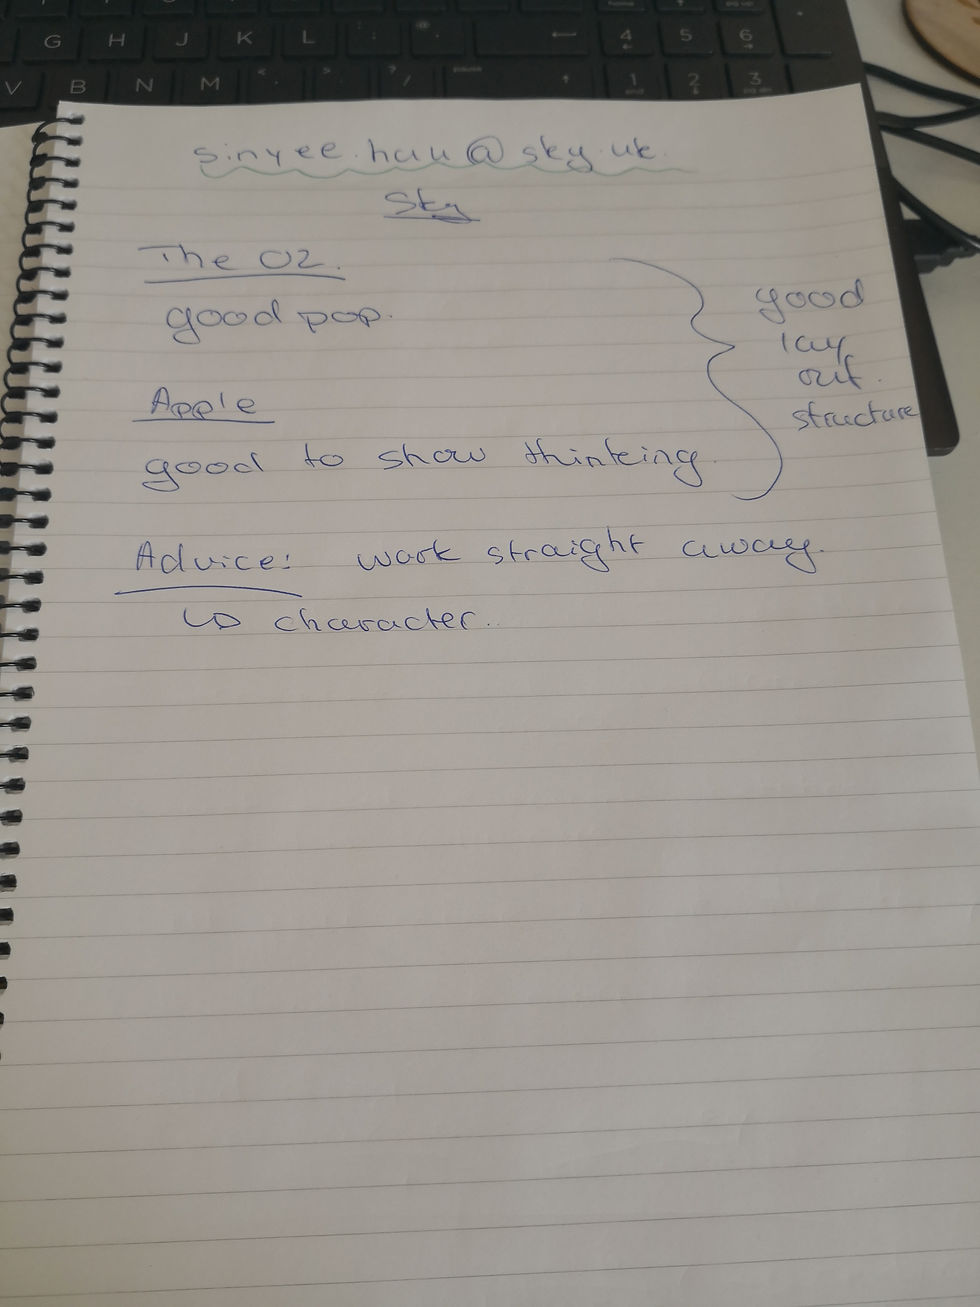 G H J K L : ; @ ← 4 5 6
V B N M < , > . ? / ↑ 1 2 3
sinyee.hau@sky.uk.
Sky
The O2.
good pop.
Apple
good to show thinking.
good
lay
out.
structure
Advice: work straight away.
↳ character..